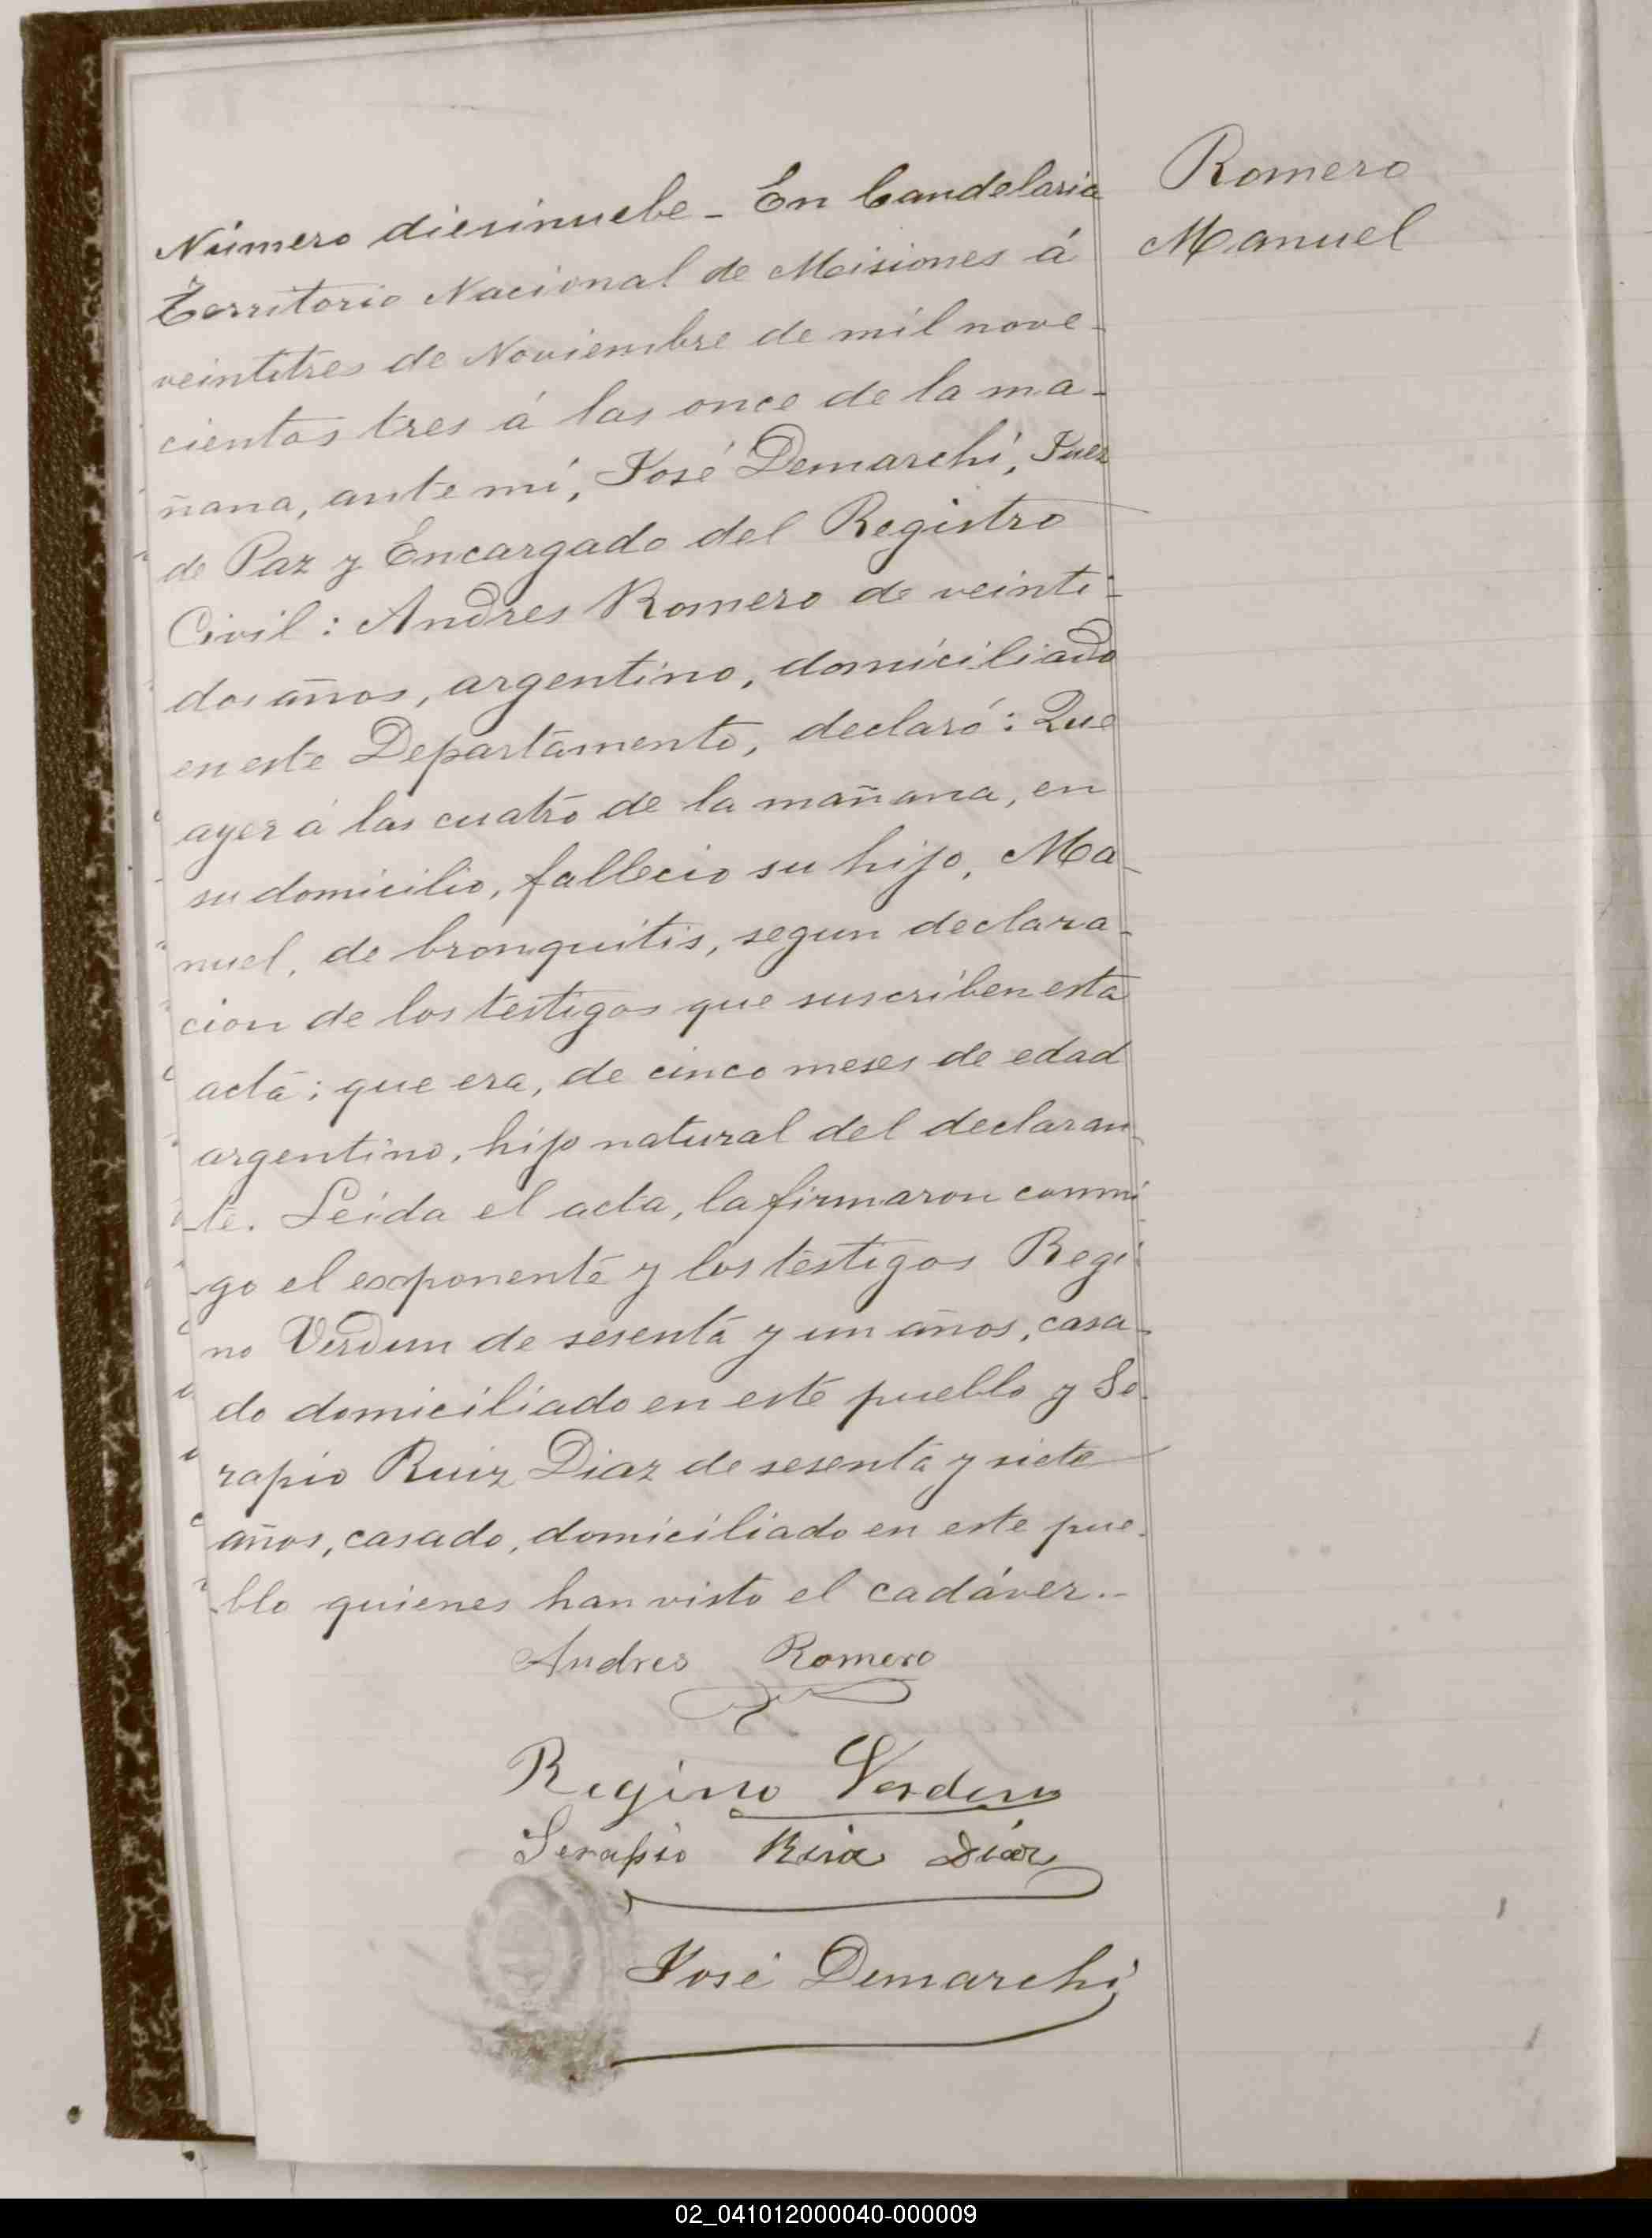 Romero
Manuel
Número diesinuebe - En Candelaria
Territorio Nacional de Misiones á
veintitres de Noviembre de mil nove-
cientos tres á las once de la ma-
ñana, ante mí, José Demarchi, Juez
de Paz y Encargado del Registro
Civil: Andres Romero de veinti-
dos años, argentino, domiciliado
en este Departamento, declaró: Que
ayer á las cuatro de la mañana, en
su domicilio, fallecio su hijo, Ma-
nuel, de bronquitis, segun declara-
cion de los testigos que suscriben esta
acta; que era, de cinco meses de edad
argentino, hijo natural del declaran-
te. Leida el acta, la firmaron conmi
go el exponente y los testigos Regi-
no Verdun de sesenta y un años, casa-
do domiciliado en este pueblo y Se-
rapio Ruiz Diaz de sesenta y siete
años, casado, domiciliado en este pue-
blo quienes han visto el cadáver.-
Andres Romero
Regino Verdun
Serapio Ruiz Díaz
José Demarchi
02_041012000040-000009